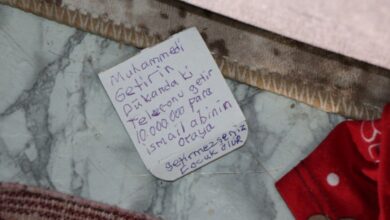 Muhammedi
Getirin
Dükanda ki
Telefonu getir
10.000 000 Para
ismail abinin
oraya
getirmezseniz
Çocuk ölür